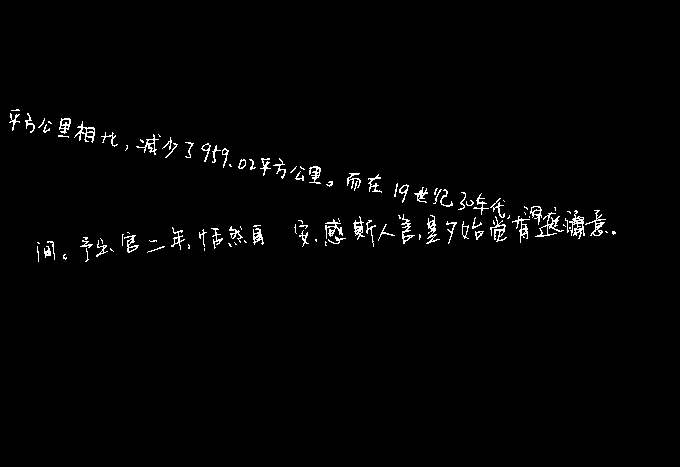 平方公里相比，减少了959.02平方公里。而在19世纪30年代，洞庭
间。予出官二年，恬然自安，感斯人言，是夕始觉有迁谪意。